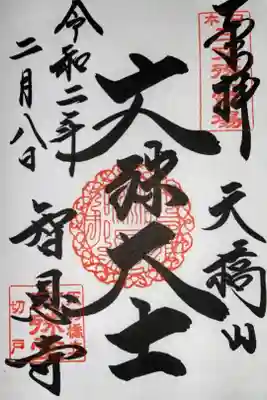 奉拝
天橋山
文殊大士
智恩寺
令和二年
二月八日
切戸